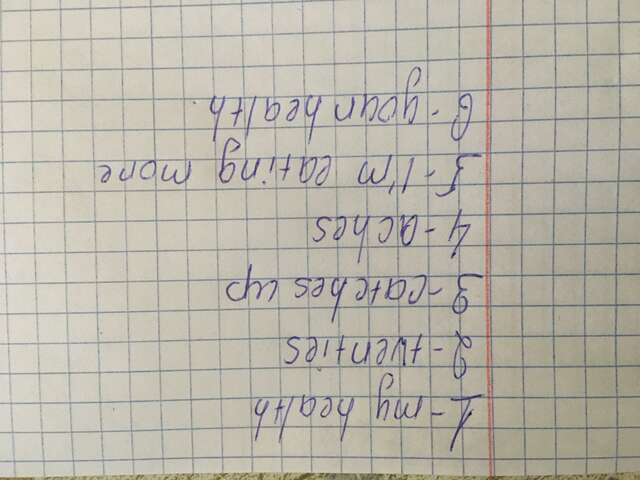 1-my health
2-twenties
3-catches up
4-aches
5-I'm eating more
6-your health